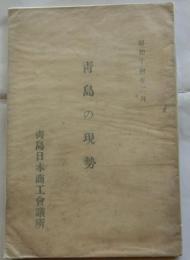 昭和十四年二月
青島の現勢
青島日本商工會議所